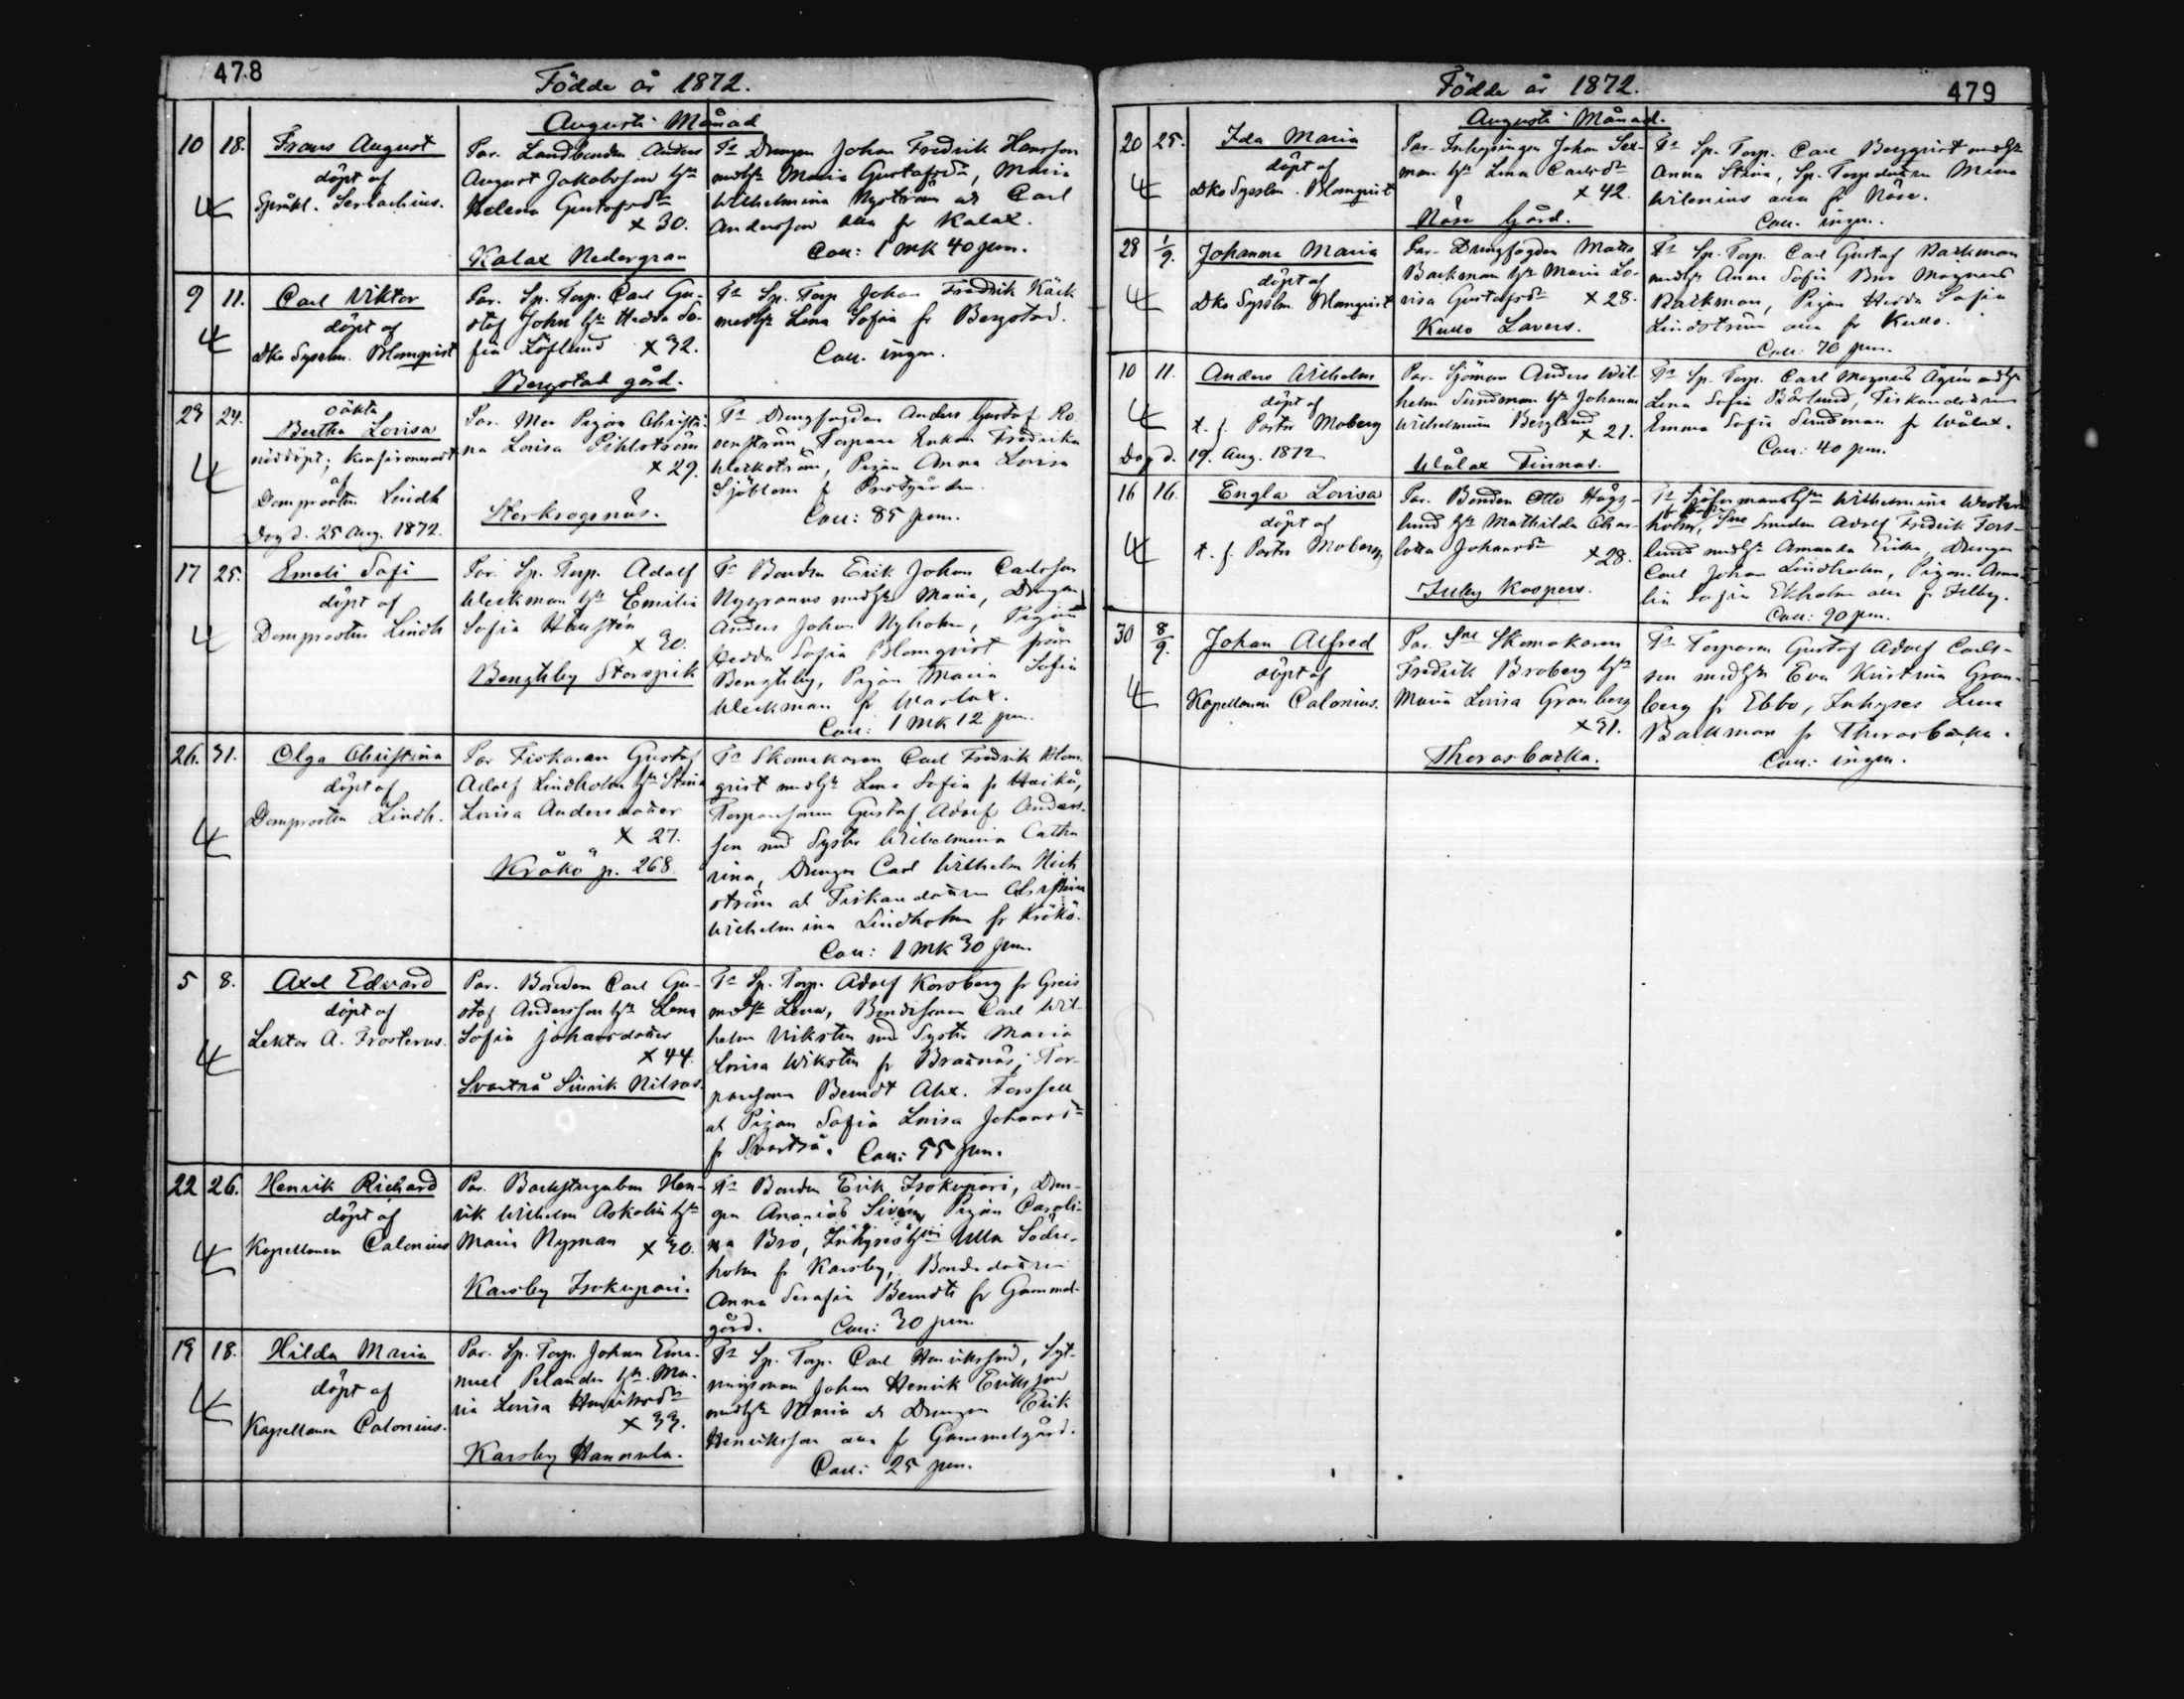 478
Födde år 1872.
Augusti Månad
10 18. Frans August
döpt af
Par. Landbonden Anders
August Jakobsson hu
Helena Gustafsdr
× 30.
Kalax Nedergran
Fr Drengen Johan Fredrik Hansson
medhu Maria Gustafsdr, Maria
Wilhelmina Nyström och Carl
Andersson alla fr Kalax.
Coll: 1 mk 40 pen.
9 11. Carl Viktor
döpt af
Dko Sysslm. Blomqvist
Par. Sp. Torp. Carl Gu-
staf John hu Hedda So-
fia Löflund × 32.
Bergstad gård.
Fr Sp. Torp Johan Fredrik Käck
medhu Lena Sofia fr Bergstad.
Coll. ingen.
23 24. oäkta
Bertha Lovisa
nöddöpt; konfirmeradt
af
Domprosten Lindh
Dog d. 25 Aug. 1872.
Par. Mor Pigan Christi-
na Lovisa Pihlström
× 29.
Storkrogsnäs.
Fr Drengfogden Anders Gustaf Ro
senström, Torpare Enkan Fredrika
Weckström, Pigan Anna Lovisa
Sjöblom f Prestgården.
Coll: 85 pen.
17 25. Emeli Sofi
döpt af
Domprosten Lindh
Par. Sp. Torp. Adolf
Weckman hu Emilia
Sofia
× 30.
Bengtsby Storspik
Fr Bonden Erik Johan Carlsson
Nygranas medhu Maria, Drengen
Anders Johan Nyholm, Pigan
Hedda Sofia Blomqvist från
Bengtsby, Pigan Maria Sofia
Weckman fr Warlax.
Coll: 1 mk 12 pen.
26. 31. Olga Christina
döpt af
Domprosten Lindh.
Par Fiskaren Gustaf
Adolf Lindholm hu Stina
Lovisa Andersdotter
× 27.
Kråkö p. 268
Fr Skomakaren Carl Fredrik Blom-
qvist medhu Lena Sofia fr Haikå,
Torparsonen Gustaf Adolf Anders-
son med Syster Wilhelmina Catha
rina, Drengen Carl Wilhelm Hick
ström och Fiskaredottren Christina
Wilhelmina Lindholm fr Kråkö.
Coll: 1 mk 30 pen.
5 8. Axel Edvard
döpt af
Lektor A. Frosterus.
Par. Bonden Carl Gu-
staf Andersson hu Lena
Sofia Johansdotter
× 44.
Svartså Nilsas.
Fr Sp. Torp. Adolf Korsberg fr Greis
medhu Lena, Bondesonen Carl Wil-
helm Wiksten med Syster Maria
Lovisa Wiksten fr Brattnäs, Tor-
parsonen Berndt Alex. Forssell
och Pigan Sofia Lovisa Johansdr
fr Svartså. Coll: 55 pen.
22 26. Henrik Richard
döpt af
Kapellanen Calonius
Par. Backstugubon Hen-
rik Wilhelm Askolin hu
Maria Nyman × 30.
Karsby Isokupari.
Fr Bonden Erik Isokupari, Dren-
gen Ananias Sivén, Pigan Caroli-
na Bro, Inhyseshun Ulla Söder-
holm fr Karsby, Bondedottren
Anna Serafia Berndts fr Gammel-
gård. Coll: 30 pen.
19 18. Hilda Maria
döpt af
Kapellanen Calonius.
Par. Sp. Torp. Johan Ema-
nuel Pelander hu. Ma-
ria Lovisa Henriksdr
× 33.
Karsby Hannula.
Fr Sp. Torp. Carl Henriksson, Syt-
ningsman Johan Henrik Eriksson
medhu Maria och Drengen Erik
Henriksson alla fr Gammelgård.
Coll: 25 pen.
Födde år 1872.
479
Augusti Månad.
20 25. Ida Maria
döpt af
Dko Sysslm. Blomqvist
Par. Inhysingen Johan Sel-
man hu Lena Carlsdr
× 42.
Näse Gård.
Fr Sp. Torp. Carl Bergqvist medhu
Anna Stina, Sp. Torpdottren Maria
Wilenius alla fr Näse.
Coll. ingen.
28 1/9. Johanna Maria
döpt af
Dko Sysslm. Blomqvist
Par. Drengfogden Matts
Backman hu Maria Lo-
visa Gustafsdr × 28.
Kullo Lavers.
Fr Sp. Torp. Carl Gustaf Backman
medhu Anna Sofia Magnus
Backman, Pigan Hedda Sofia
Lindström alla fr Kullo.
Coll: 70 pen.
10 11. Anders Wilhelm
döpt af
t. f. Pastor Moberg
Dog d. 19. Aug. 1872
Par. Sjöman Anders Wil-
helm Sundman hu Johanna
Wilhelmina Berglund
× 21.
Wålax Finnas.
Fr Sp. Torp. Carl Magnus Ågrén medhu
Lena Sofia Börlund, Fiskaredottren
Emma Sofia Sundman fr Wålax.
Coll: 40 pen.
16 16. Engla Lovisa
döpt af
t. f. Pastor Moberg
Par. Bonden Otto Hägg-
lund hu Mathilda Char-
lotta Johansdr
× 28.
Illby Kaspers.
Fr Sjöfarmanshun Wilhelmina Wester-
holm, Sne Smeden Adolf Fredrik Fors-
lund medhu Amanda Erika, Drengen
Carl Johan Lindholm, Pigan Ama-
lia Sofia Ekholm alla fr Illby.
Coll: 90 pen.
30 8/9. Johan Alfred
döpt af
Kapellanen Calonius.
Par. Sne Skomakaren
Fredrik Broberg hu
Maria Lovisa Granberg
× 31.
Thorasbacka.
Fr Torparen Gustaf Adolf Carls-
son medhu Eva Kristina Gran-
berg fr Ebbo, Inhyses Lena
Backman fr Thorasbacka.
Coll: ingen.